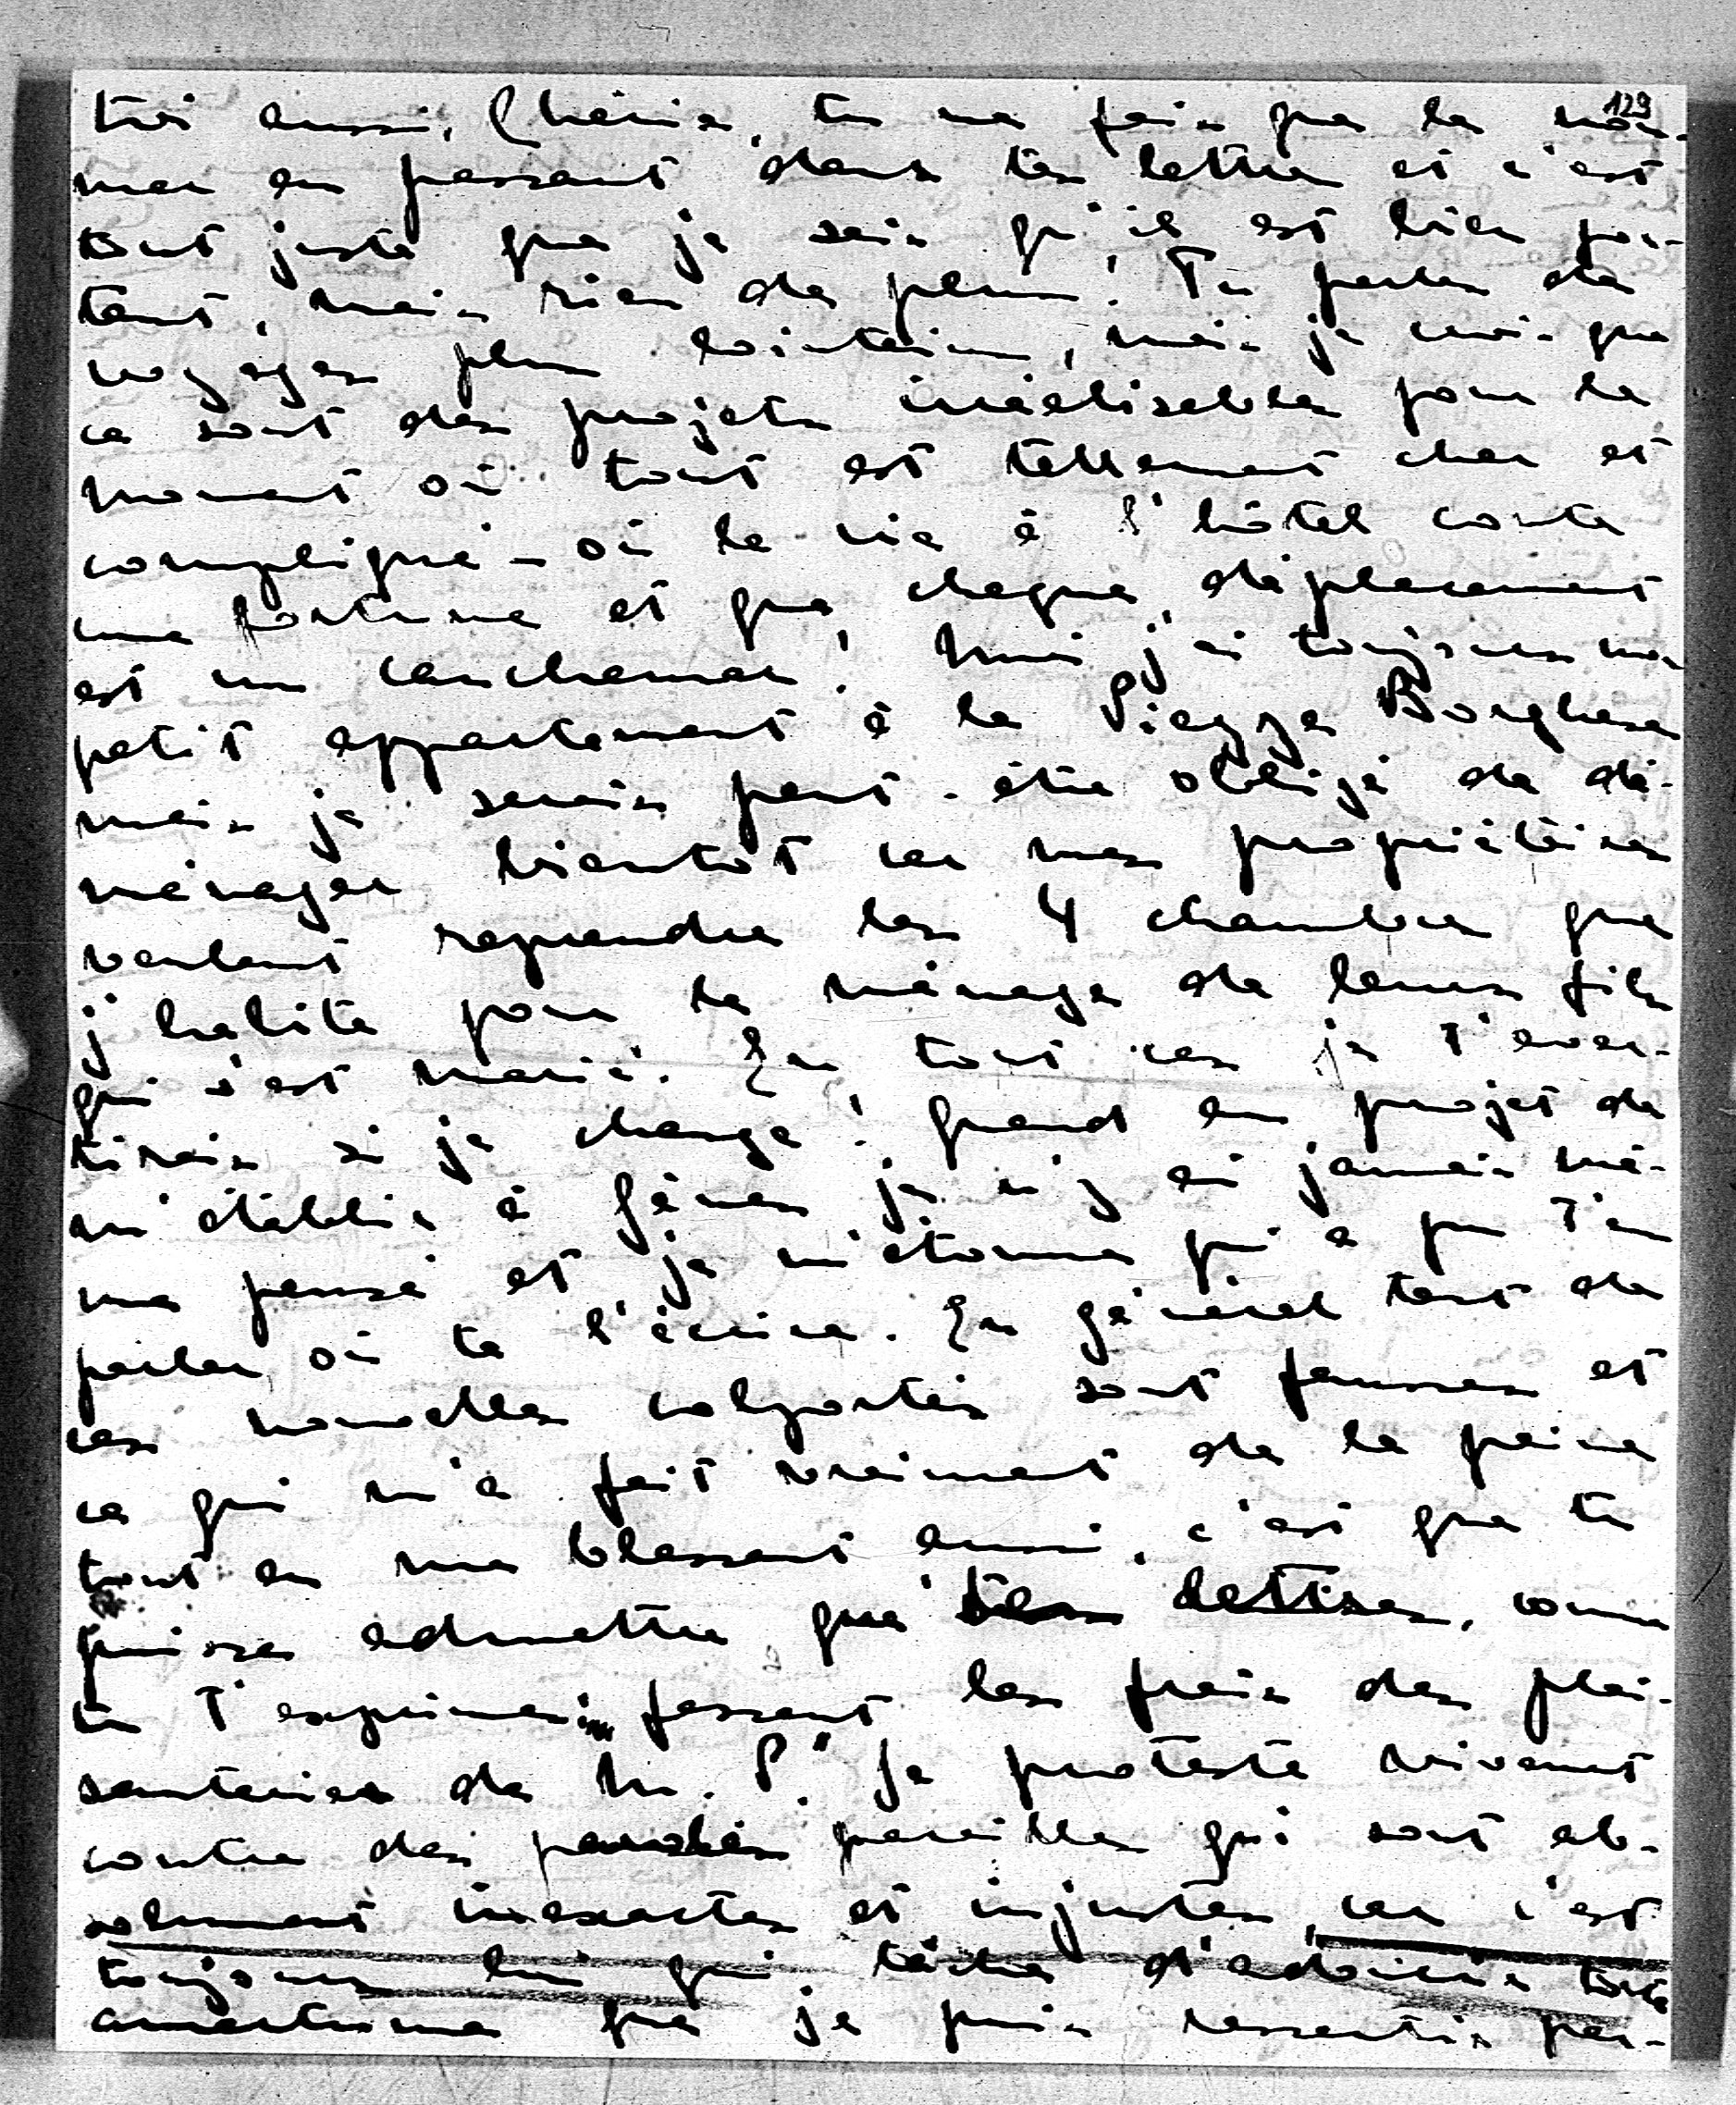 129
toi aussi, Chérie, tu ne fais que le nom-
mer en passant dans tes lettres et c'est
tout juste que je sais qu'il est bien por-
tant, mais rien de plus! Tu parles de
voyages plus lointains, mais je crois que
ce sont des projets irréalisables pour le
moment où tout est tellement cher et
compliqué – où la vie à l'hôtel coute
une fortune et que chaque déplacement
est un cauchemar! Moi j'ai toujours mon
petit appartement à la Piazza Borghese
mais je serais peut-être obligé de dé-
ménager bientôt car mes propriétaires
veulent reprendre les 4 chambres que
j'habite pour le ménage de leurs fils
qui s'est marié. En tout cas je t'aver-
tirais si je change! Quand au projet de
m'établir à Gênes je n'y ai jamais mê-
me pensé et je m'étonne qui a pu t'en
parler où te l'écrire. En général tout de
ces nouvelles colportés sont fausses et
ce qui m'a fait vraiment de la peine
tout en me blessant aussi, c'est que tu
puisse admettre que "tes lettres, comme
tu t'exprimes, fassent les frais des plai-
santeries de M. P." Je proteste vivement
contre des paroles pareilles qui sont ab-
solument inexactes et injustes, car c'est
toujours lui qui tâche d'adoucir toute
amertume que je puis ressentir par-